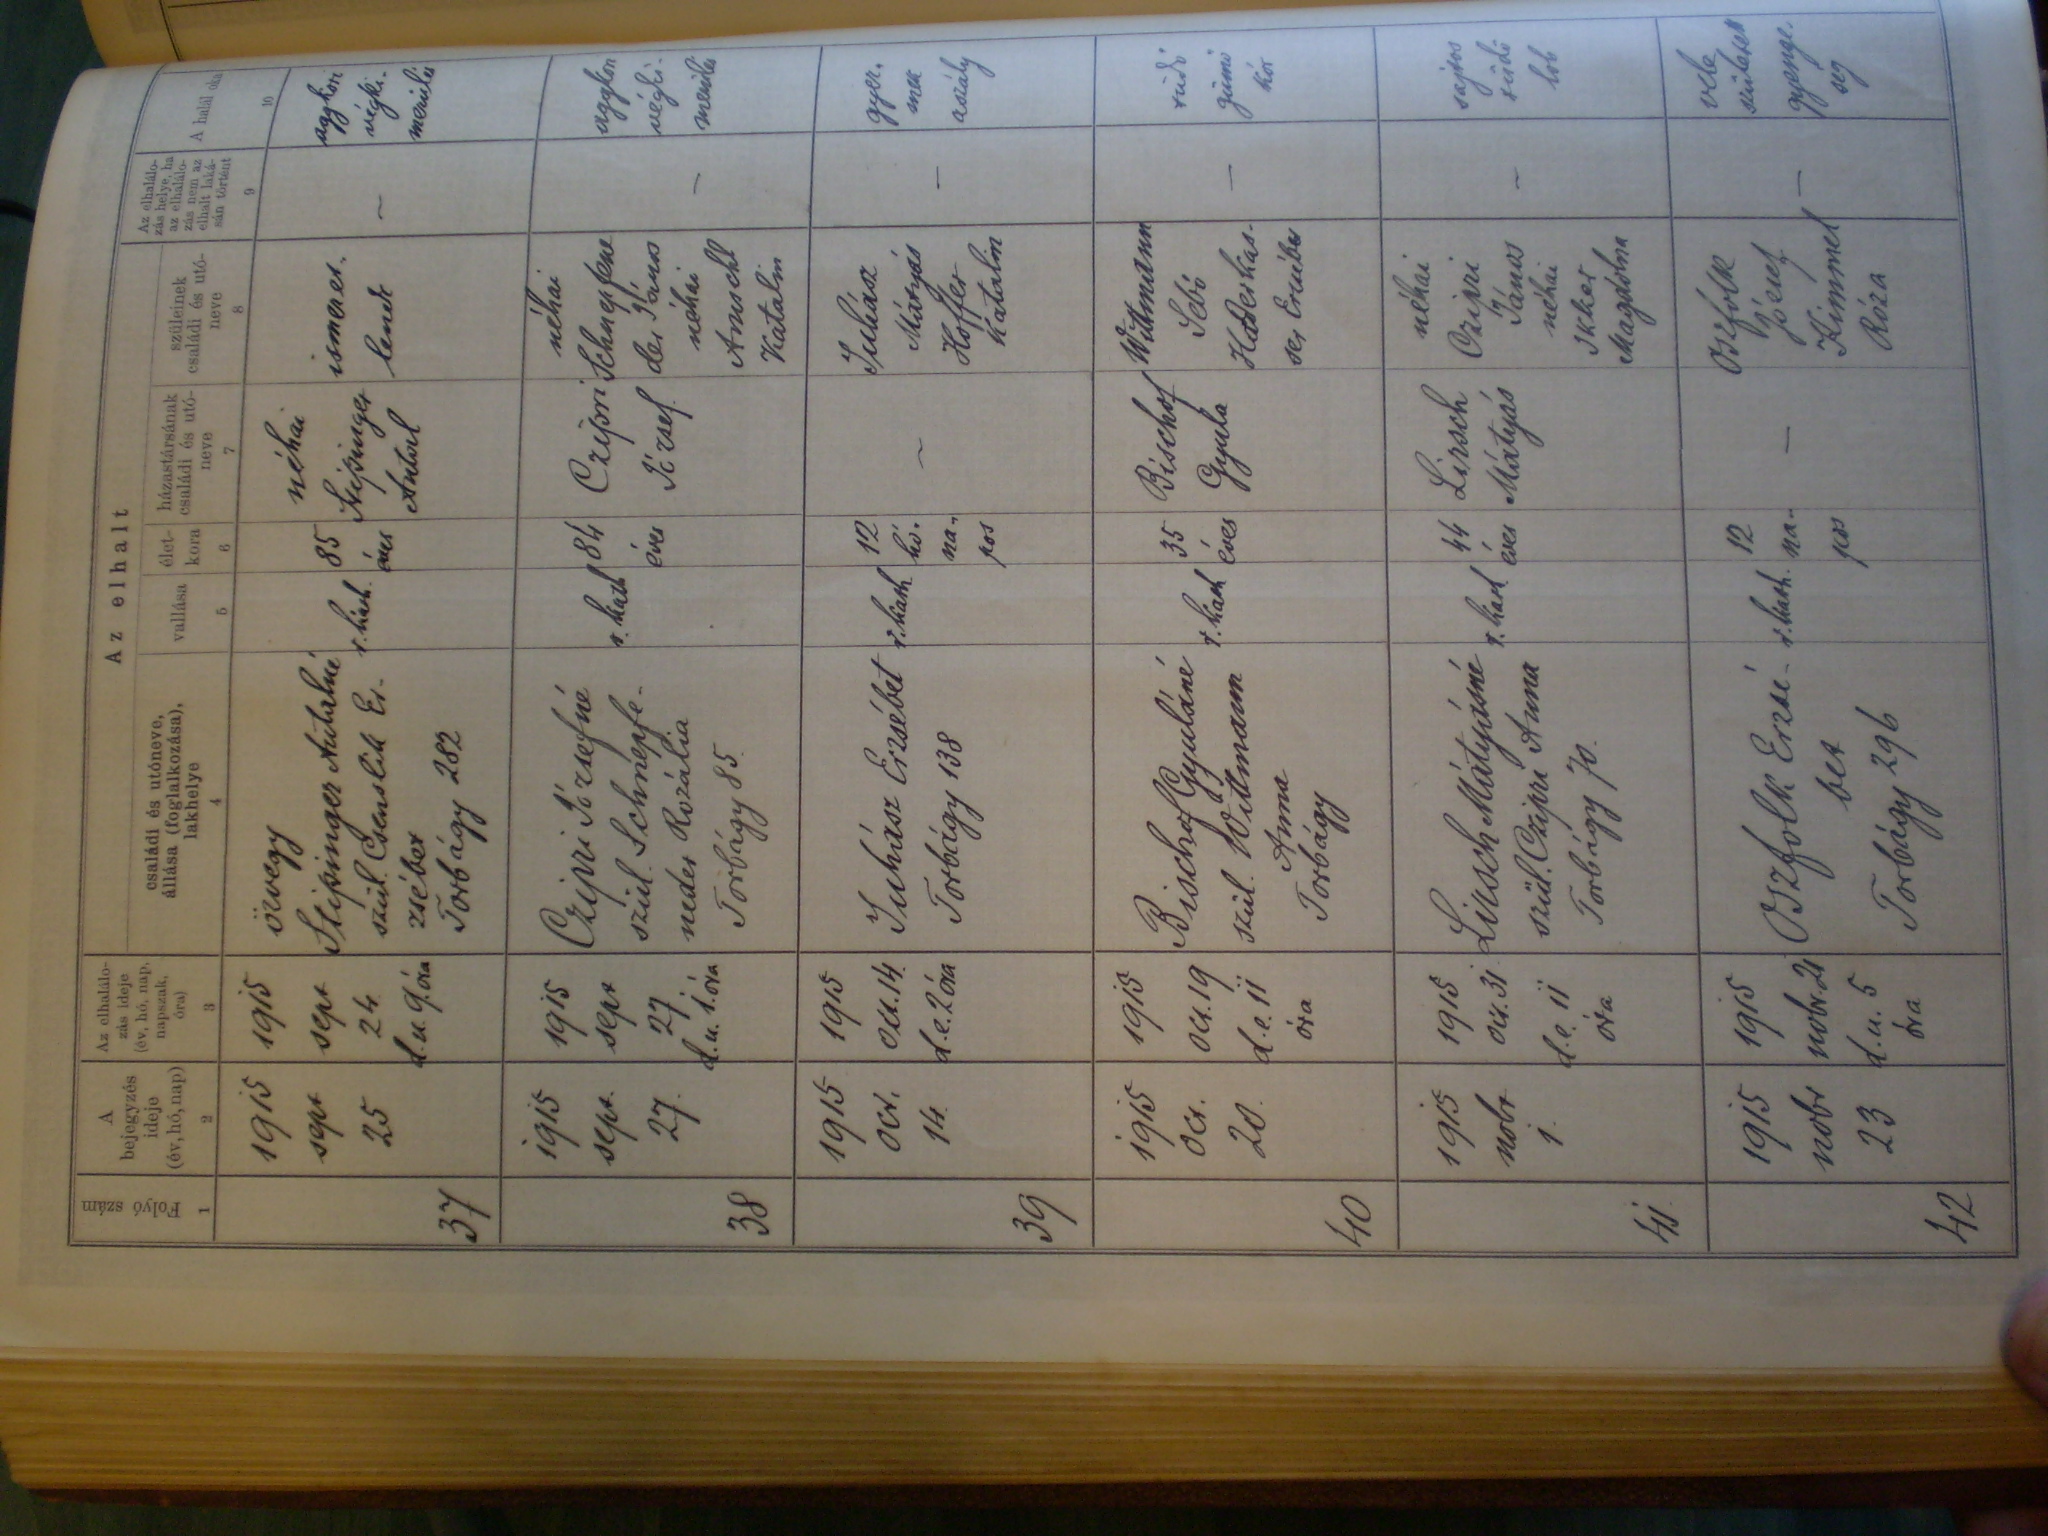 Az elhalt
Folyó szám
A bejegyzés ideje (év, hó, nap)
Az elhalálo-
zás ideje
(év, hó, nap,
napszak,
óra)
családi és utóneve,
állása (foglalkozása),
lakhelye
vallása
élet-
kora
házastársának
családi és utó-
neve
szüleinek
családi és utó-
neve
Az elhalálo-
zás helye, ha
az elhalálo-
zás nem az
elhalt laká-
sán történt
A halál oka
1 2 3 4 5 6 7 8 9 10
37
1915
sept
25
1915
sept
24.
d.u. 9 óra
özvegy
Stipsinger Antalné
szül. Csenslik Er-
zsébet
Torbágy 282
r. kath.
85
éves
néhai
Stipsinger
Antal
ismeret-
lenek
—
aggkori
végki-
merülés
38
1915
sept.
27.
1915
sept
27
d.u. 1. óra
Czipri Józsefné
szül. Schnepfe-
neder Rozália
Torbágy 85.
r. kath
84
éves
Czipri
József
néhai
Schnepfene
der János
néhai
Anschl
Katalin
—
aggkori
végki-
merülés
39
1915
oct.
14.
1915
oct. 14.
d.e. 2 óra
Juhász Erzsébet
Torbágy 138
r. kath.
12
hó-
na-
pos
—
Juhász
Mátyás
Hoffer
Katalin
—
gyer-
mek
aszály
40
1915
oct.
20.
1915
oct. 19
d.e. 11
óra
Bischof Gyuláné
szül. Wittmann
Anna
Torbágy
r. kath
35
éves
Bischof
Gyula
Wittmann
Sebő
—
tüdő
gümő
kór
41.
1915
nobr
1.
1915
oct. 31.
d.e. 11
óra
Lirsch Mátyásné
szül. Czipri Anna
Torbágy 70.
r. kath
44
éves
Lirsch
Mátyás
néhai
Czipri
János
néhai
Ikker
Magdolna
—
sajtos
tüdő
lob
42
1915
nobr
23
1915
nobr. 21
d.u. 5
óra
Oszfolk Erzsé-
bet
Torbágy 296
r. kath.
12
na-
pos
—
Oszfolk
József
Kimmel
Róza
—
vele
született
gyenge-
ség